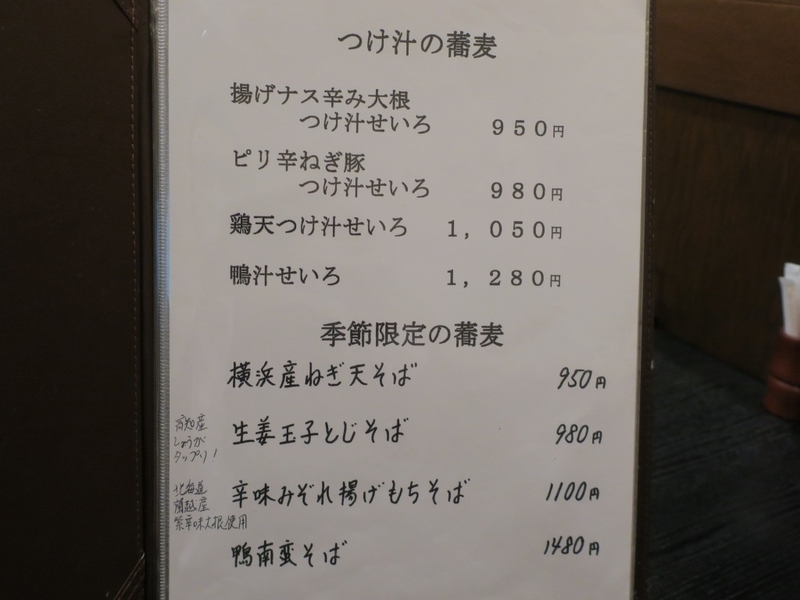 つけ汁の蕎麦
揚げナス辛み大根
つけ汁せいろ 950円
ピリ辛ねぎ豚
つけ汁せいろ 980円
鶏天つけ汁せいろ 1,050円
鴨汁せいろ 1,280円
季節限定の蕎麦
横浜産ねぎ天そば 950円
高知産
しょうが
タップリ!
生姜玉子とじそば 980円
北海道
蘭越産
紫辛味大根使用
辛味みぞれ揚げもちそば 1100円
鴨南蛮そば 1480円